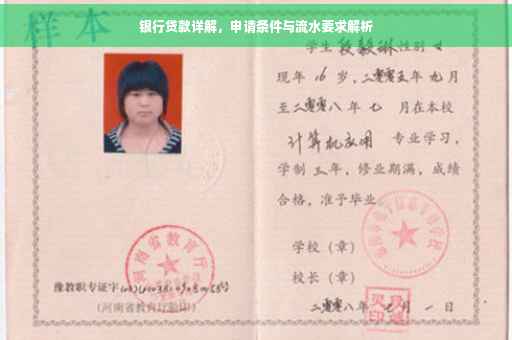 银行贷款详解，申请条件与流水要求解析
样本
学生段毅琳性别女
现年16岁，二零零五年九月
至二零零八年七月在本校
计算机应用 专业学习，
学制三年，修业期满，成绩
合格，准予毕业。
学校（章）
校长（章）
二零零八年七月一日
河南省教育厅
豫教职专证字
（河南省教育厅验印）